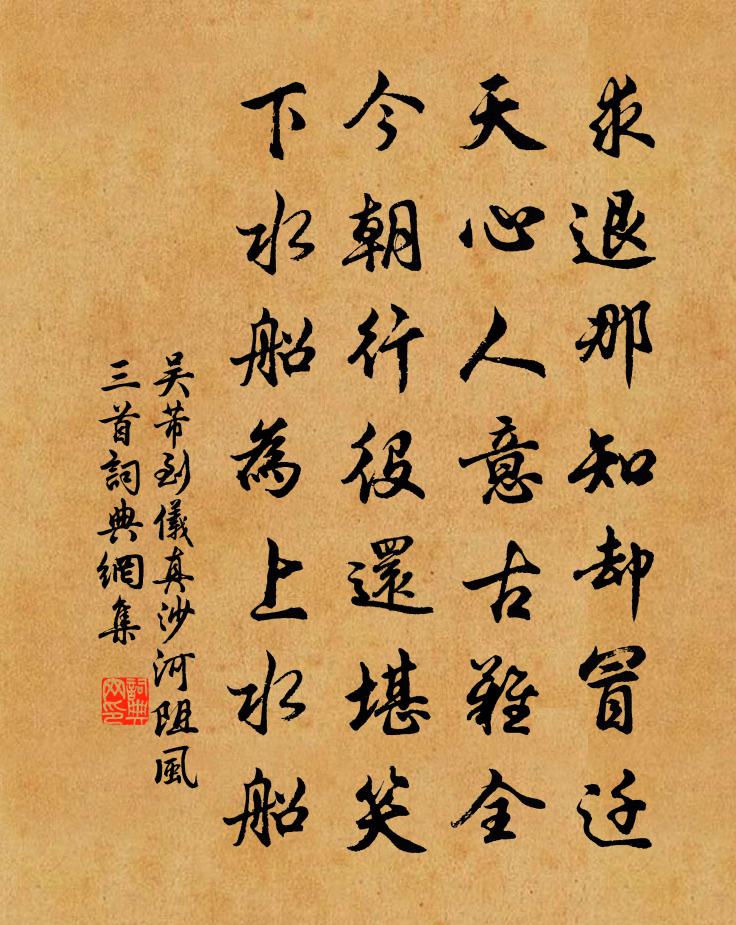 求退那知却冒迁
天心人意古難全
今朝行役還堪笑
下水船為上水船
吴芾到儀真沙河阻風
三首詞典網集
詞典
网印